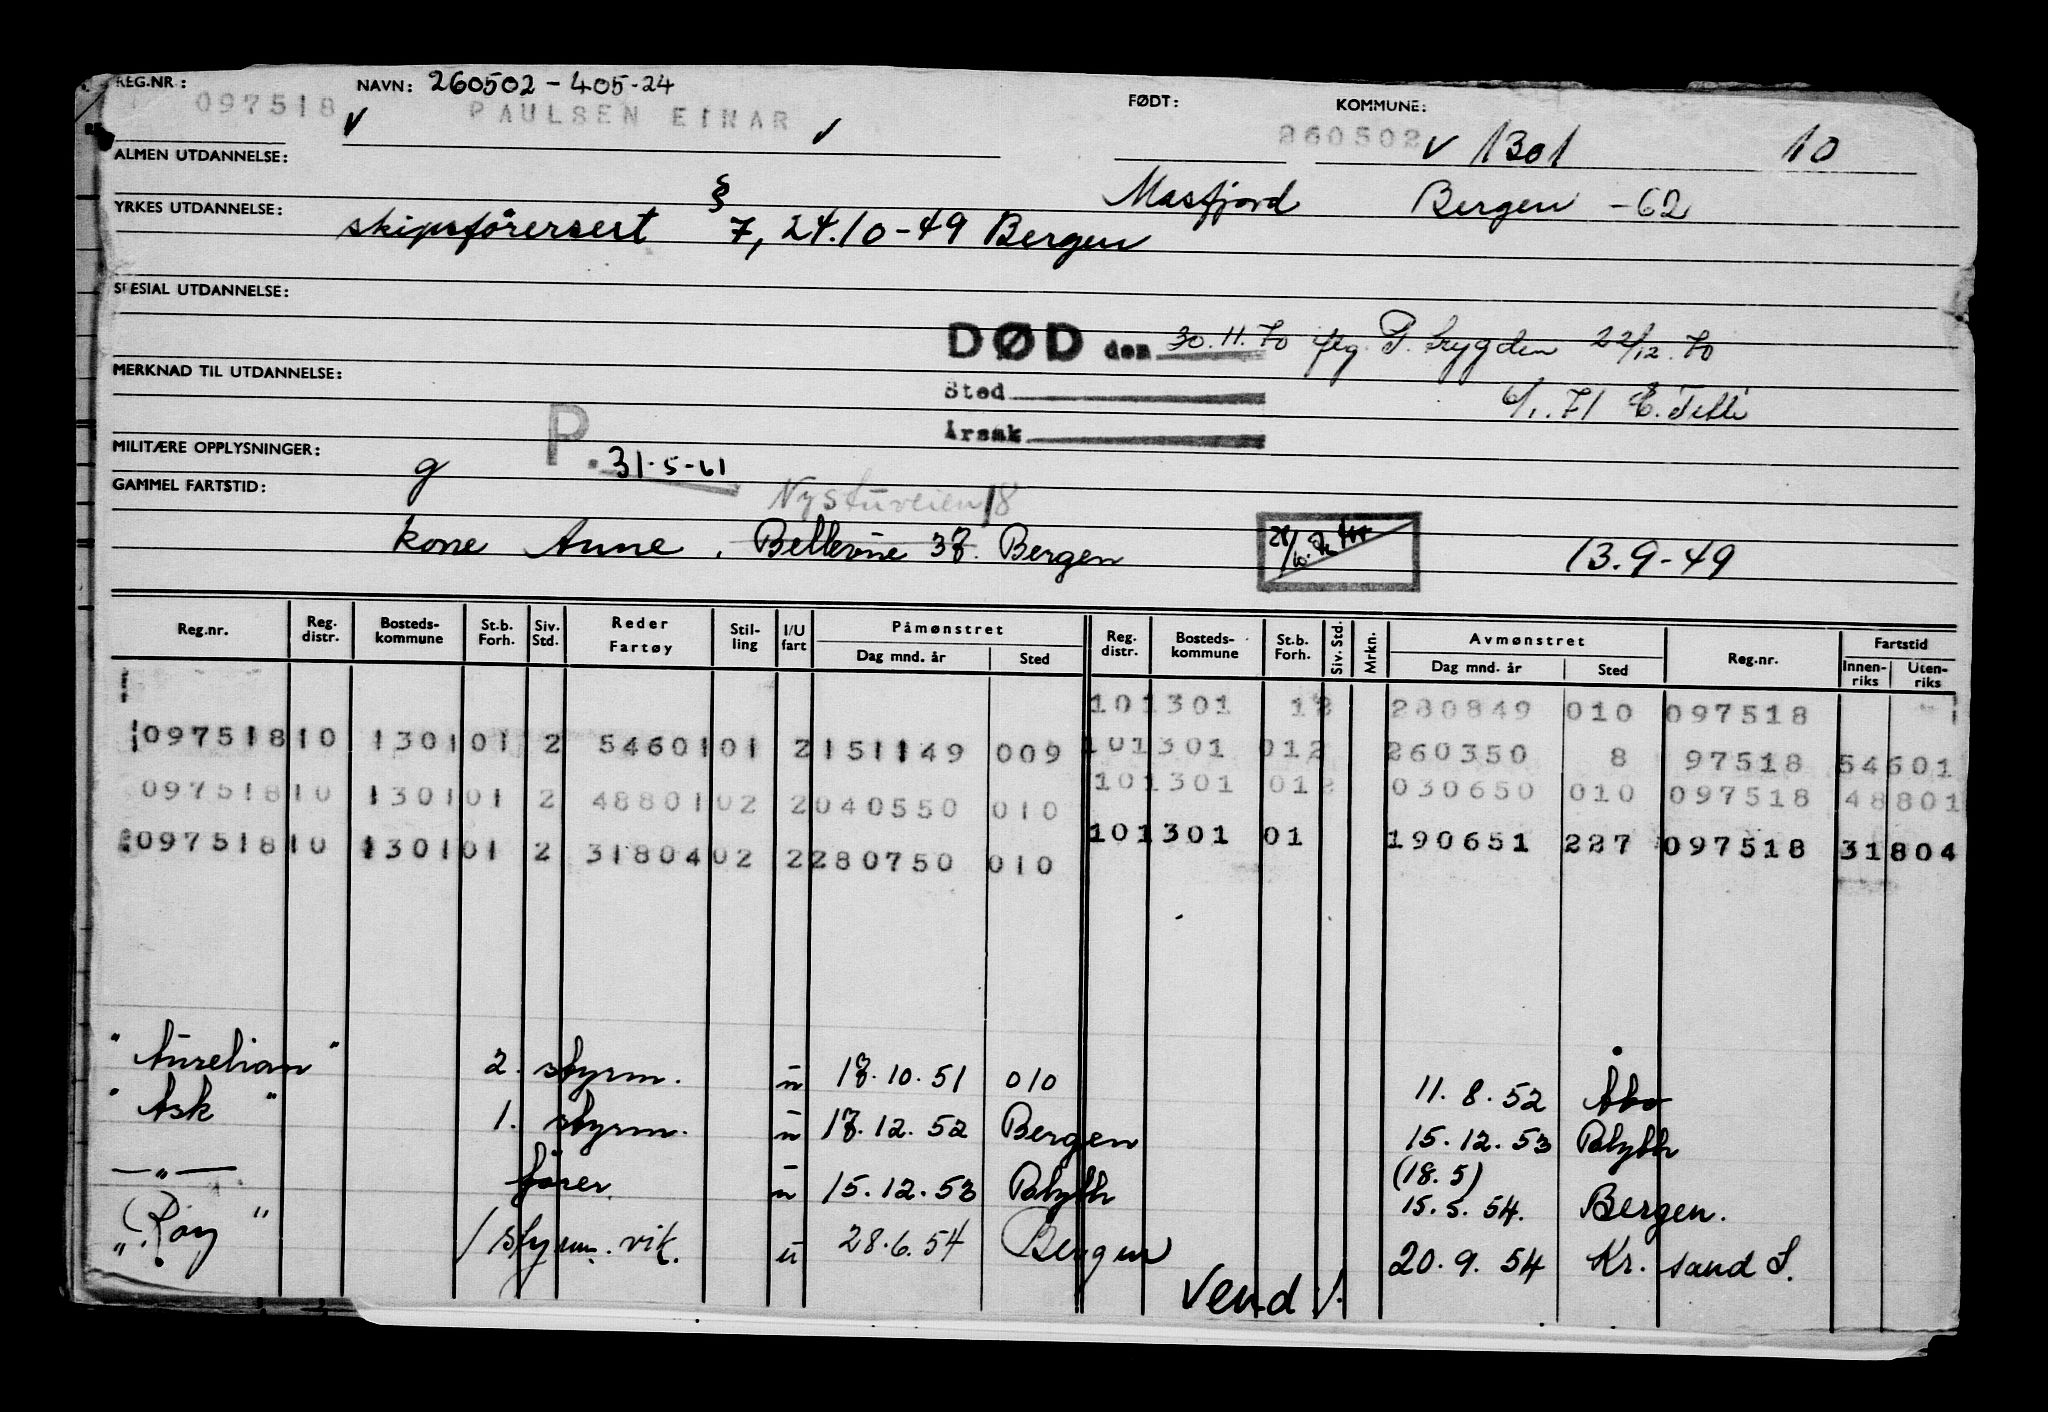 REG.NR: NAVN: 260502-405-24 FØDT: KOMMUNE:
097518 v PAULSEN EINAR v 260502 v 1301 10
ALMEN UTDANNELSE:
Masfjord Bergen -62
YRKES UTDANNELSE: skipsförersert § 7, 24.10-49 Bergen
SPESIAL UTDANNELSE:
DØD den 30.11.70 flg. P. trygden 22/12.70
MERKNAD TIL UTDANNELSE:
Sted 6/1.71
Årsak
MILITÆRE OPPLYSNINGER: g P. 31-5-61
GAMMEL FARTSTID: Nystuveien 18
kone Anne, Bellevue 37. Bergen 13.9-49
Reg.nr. Reg. distr. Bosteds-kommune St.b. Forh. Siv. Std. Reder Fartøy Stil-ling I/U fart Påmønstret Dag mnd. år Sted Reg. distr. Bosteds-kommune St.b. Forh. Siv. Std. Mrkn. Avmønstret Dag mnd. år Sted Reg.nr. Fartstid Innen-riks Uten-riks
101301 12 280849 010 097518
097518 10 1301 01 2 54601 01 2 151149 009 101301 012 260350 8 97518 54601
097518 10 1301 01 2 48801 02 2 040550 010 101301 012 030650 010 097518 48801
097518 10 1301 01 2 31804 02 2 280750 010 101301 01 190651 227 097518 31804
"Aurelian" 2. styrm. u 17.10.51 010 11.8.52 Åbo
"Ask" 1. styrm. u 17.12.52 Bergen 15.12.53 Blyth
—"— fører u 15.12.53 Blyth (18.5) 15.5.54. Bergen.
"Roy" 1 styrm. vik. u 28.6.54 Bergen 20.9.54 Kr. sand S.
Vend /.